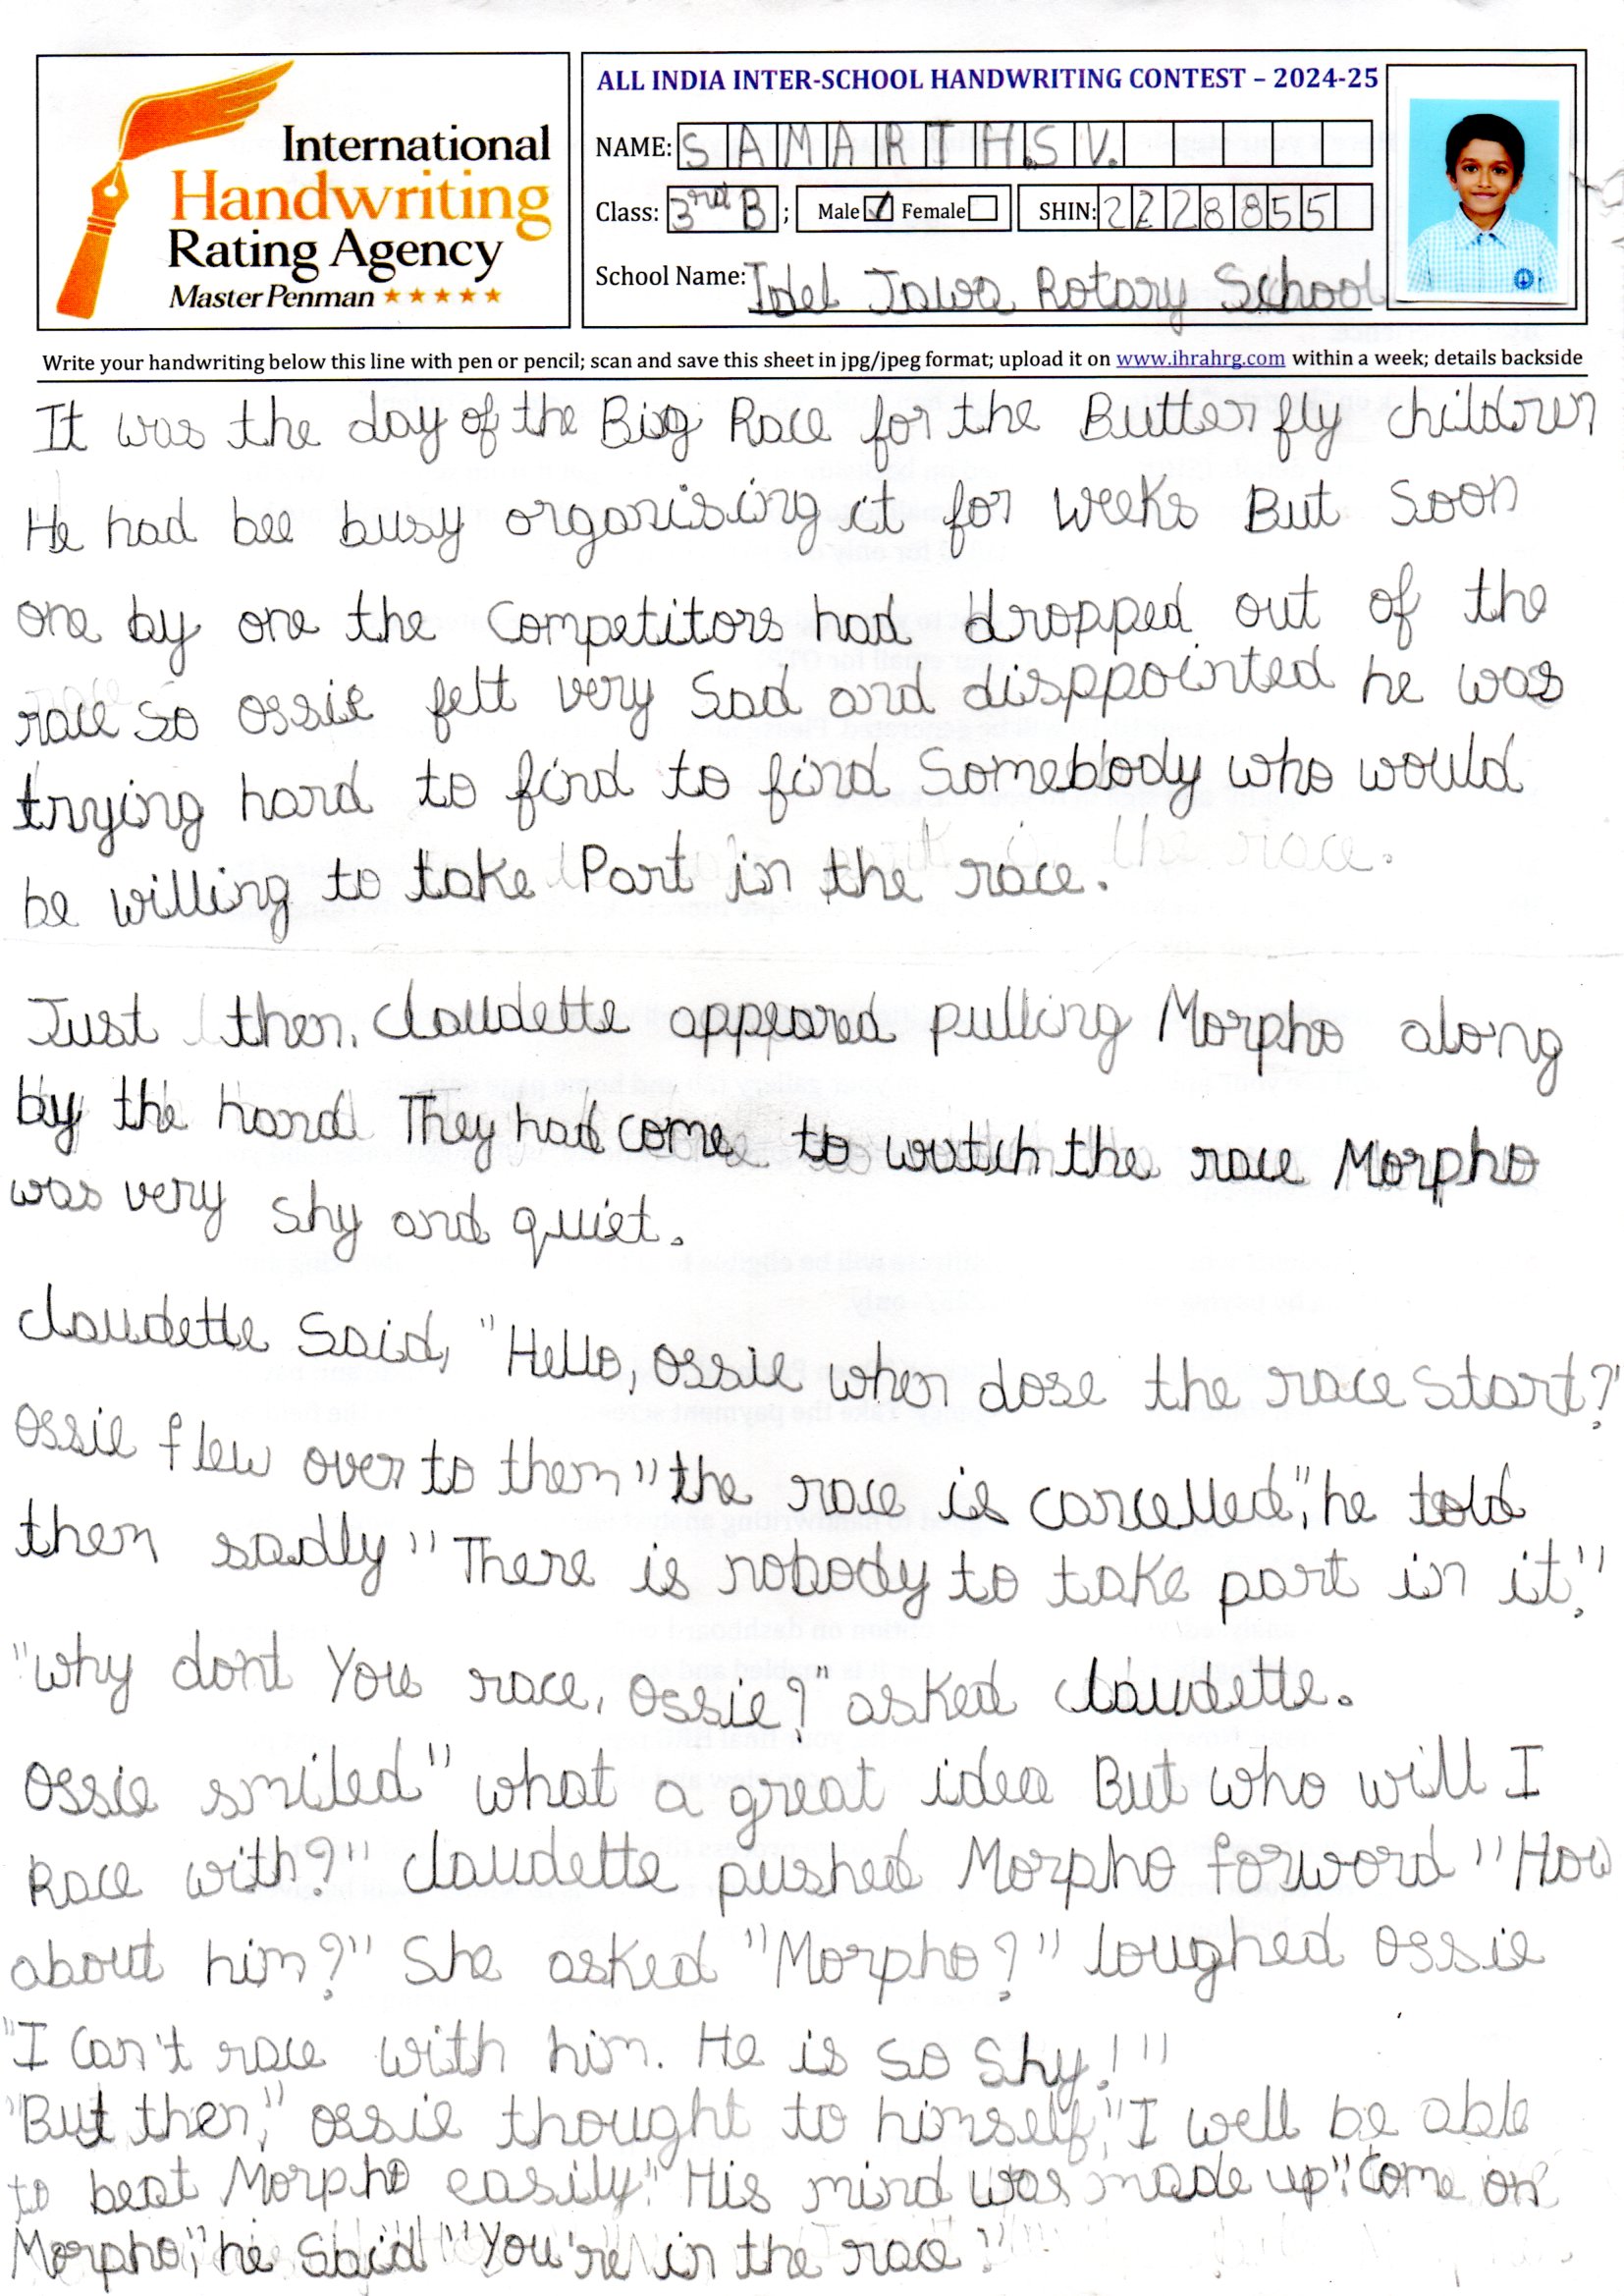 International
Handwriting
Rating Agency
Master Penman
ALL INDIA INTER-SCHOOL HANDWRITING CONTEST – 2024-25
NAME: SAMARTH.S V.
Class: 3rd B ; Male Female SHIN: 2228855
School Name: Idel Jawa Rotary School
Write your handwriting below this line with pen or pencil; scan and save this sheet in jpg/jpeg format; upload it on www.ihrahrg.com within a week; details backside
It was the day of the Big Race for the Butterfly children
He had bee busy organising it for weeks But Soon
one by one the Competitors had dropped out of the
race So Ossie felt very Sad and disppointed he was
trying hard to find to find Somebody who would
be willing to take Part in the race.
Just then, Claudette appeared pulling Morpho along
by the hand They had come to watch the race Morpho
was very shy and quiet.
Claudette Said, "Hello, Ossie when dose the race Start?"
Ossie flew over to them "the race is cancelled", he told
them sadly "There is nobody to take part in it."
"why dont You race, Ossie?" asked Claudette.
Ossie smiled "what a great idea But who will I
Race with?" Claudette pushed Morpho forward "How
about him?" She asked "Morpho?" loughed Ossie
"I Can't race with him. He is so Shy!"
"But then," Ossie thought to himself, "I well be able
to beat Morpho easily." His mind was made up. "Come on
Morpho," he Said "You're in the race"